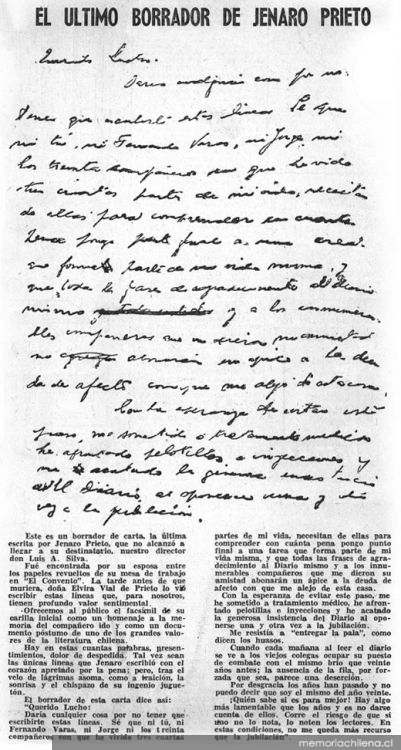 EL ULTIMO BORRADOR DE JENARO PRIETO
Querido Lucho:
Daría cualquier cosa por no
tener que escribirte estas líneas. Sé que
ni tú, ni Fernando Varas, ni Jorge, ni
los treinta compañeros con que he vivido
tres cuartas partes de mi vida, necesitan
de ellas para comprender con cuánta
pena pongo punto final a una tarea
que forma parte de mi vida misma, y
que todas las frases de agradecimiento al Diario
mismo y a los innumera-
bles compañeros que me dieron su amistad
no abonarán un ápice a la deu-
da de afecto con que me alejo de esta casa.
Con la esperanza de evitar este
paso, me he sometido a tratamiento médico
he afrontado pelotillas e inyecciones y
he acatado la generosa insistencia
del Diario al oponerse una y otra
vez a la jubilación.
Este es un borrador de carta, la última
escrita por Jenaro Prieto, que no alcanzó a
llegar a su destinatario, nuestro director
don Luis A. Silva.
Fué encontrada por su esposa entre
los papeles revueltos de su mesa de trabajo
en "El Convento". La tarde antes de que
muriera, doña Elvira Vial de Prieto lo vió
escribir estas líneas que, para nosotros,
tienen profundo valor sentimental.
Ofrecemos al público el facsímil de su
carilla inicial como un homenaje a la me-
moria del compañero ido y como un docu-
mento póstumo de uno de los grandes valo-
res de la literatura chilena.
Hay en estas cuantas palabras, presen-
timientos, dolor de despedida. Tal vez sean
las únicas líneas que Jenaro escribió con el
corazón apretado por la pena; pero, tras el
velo de lágrimas asoma, como a traición, la
sonrisa y el chispazo de su ingenio jugue-
tón.
El borrador de esta carta dice así:
"Querido Lucho:
Daría cualquier cosa por no tener que
escribirte estas líneas. Sé que ni tú, ni
Fernando Varas, ni Jorge ni los treinta
compañeros con que he vivido tres cuartas
partes de mi vida, necesitan de ellas para
comprender con cuánta pena pongo punto
final a una tarea que forma parte de mi
vida misma, y que todas las frases de agra-
decimiento al Diario mismo y a los innu-
merables compañeros que me dieron su
amistad abonarán un ápice a la deuda de
afecto con que me alejo de esta casa.
Con la esperanza de evitar este paso, me
he sometido a tratamiento médico, he afron-
tado pelotillas e inyecciones y he acatado
la generosa insistencia del Diario al opo-
nerse una y otra vez a la jubilación.
Me resistía a "entregar la pala", como
dicen los huasos.
Cuando cada mañana al leer el diario
se ve a los viejos colegas ocupar su puesto
de combate con el mismo brío que veinte
años antes; la ausencia de la fila, por for-
zada que sea, parece una deserción.
Por desgracia los años han pasado y no
puedo decir que soy el mismo del año veinte.
¡Quién sabe si es para mejor! Hay algo
más lamentable que los años y es no darse
cuenta de ellos. Corre el riesgo de que si
uno no lo nota, lo noten los lectores. En
estas condiciones, no me queda más recurso
que la jubilación".
memoriachilena.cl